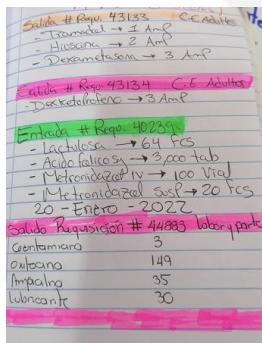 Salida # Requ. 43133 C.E Adultos
- Tramadal → 1 Amp
- Hioscina → 2 Amp
- Dexametasona → 3 Amp
Salida # Requ: 43134 C.E Adultos
- Desketoprofeno → 3 Amp
Entrada # Requ. 40239
- Lactulosa → 64 Fcs
- Acido folico S/ → 3,000 tab
- Metronidazol IV → 100 Vial
- Metronidazol Susp → 20 Fcs
20 - Enero - 2022
Salida Requisición # 44883 labor y parto
Gentamiano 3
Oxitocino 149
Ampicilno 35
Lubricante 30